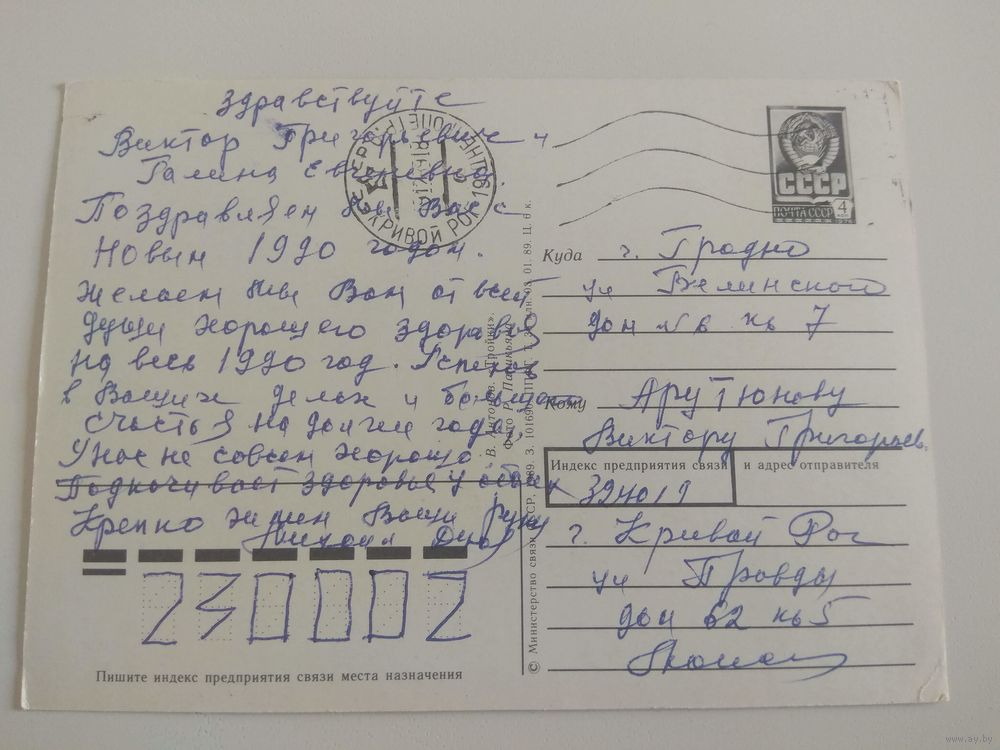 здравствуйте
Виктор Григорьевич и
Галина Евгеньевна.
Поздравляем бы Вас с
Новым 1990 годом.
Желаем бы Вам от всей
души хорошего здоровья
на весь 1990 год. Успехов
в Ваших делах и большого
счастья на долгие года,
У нас не совсем хорошо
Подкачивает здоровье у обоих
Крепко жмем Ваши руки
230002
Пишите индекс предприятия связи места назначения
КРИВОЙ РОГ
В. Антонов. «Тройки».
© Министерство связи СССР, 1989. З.
СССР
ПОЧТА СССР 4
Куда г. Гродно
ул Белинского
дом № 6 кв 7
Кому Арутюнову
Виктору Григорьев.
Индекс предприятия связи и адрес отправителя
324019
г. Кривой Рог
ул Правды
дом 62 кв 5
www.ay.by